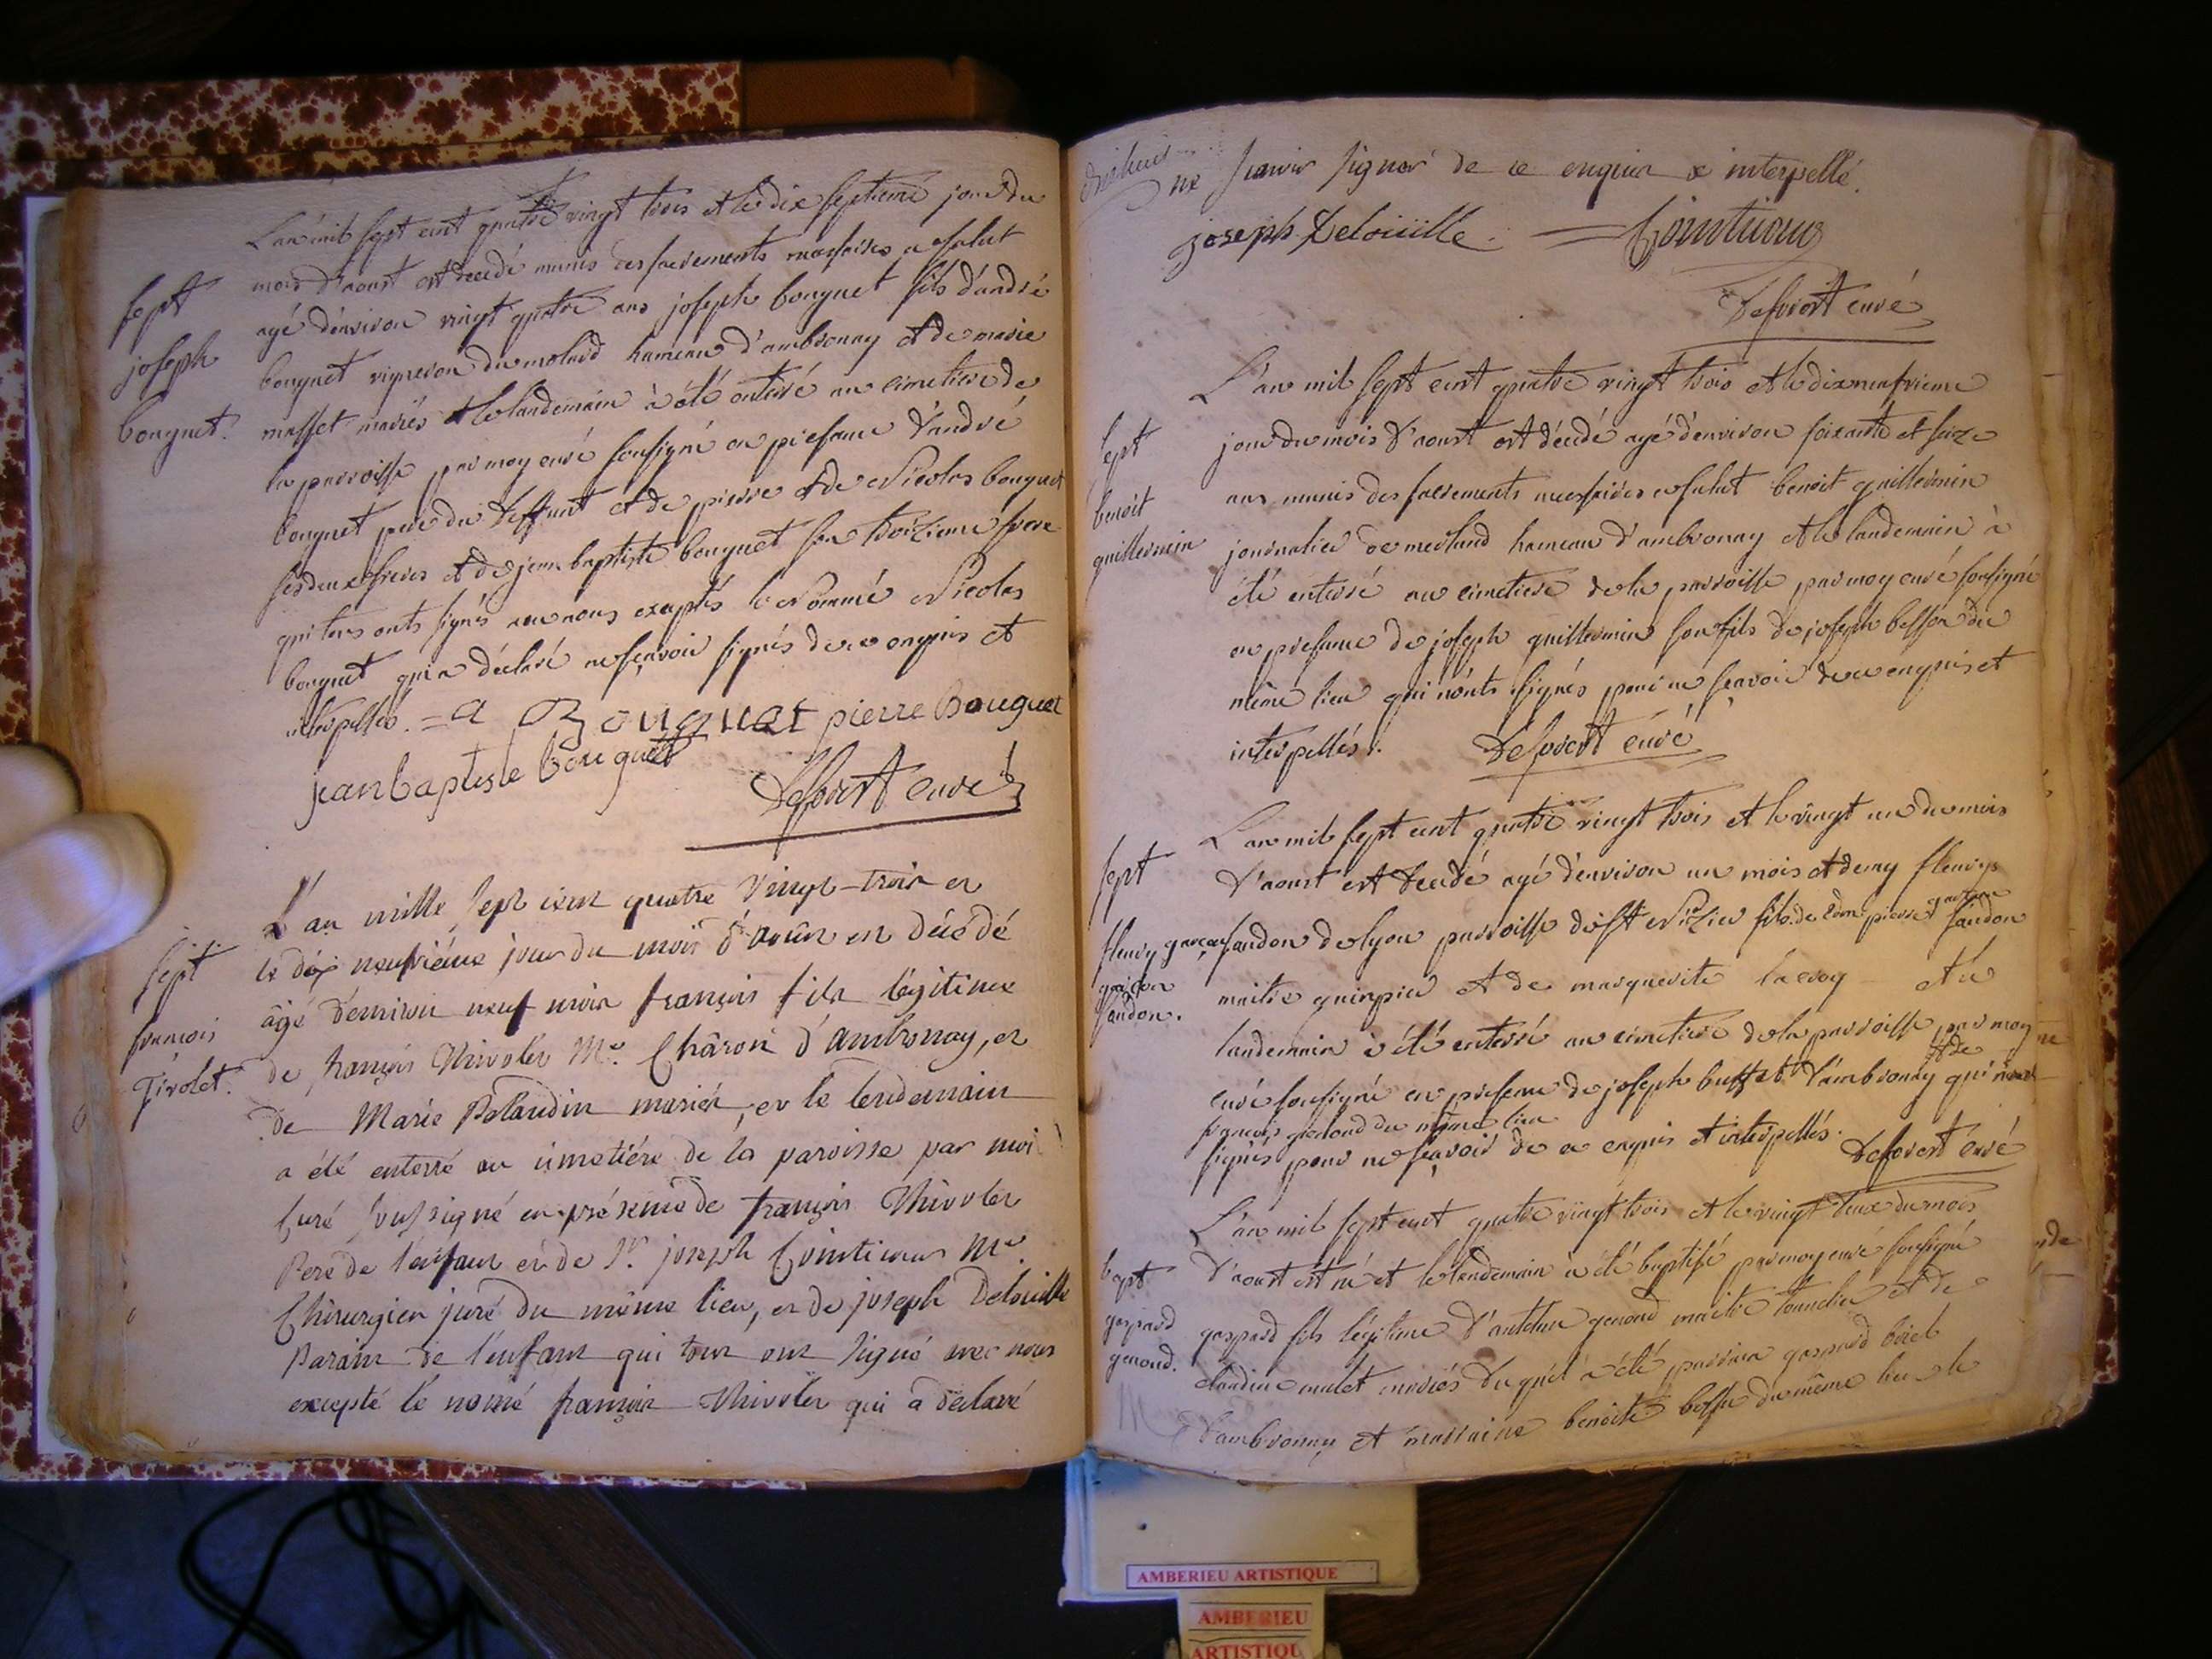 L'an mil sept cent quatre vingt trois et le dix septieme jour du
mois d'aoust est décédé munis des sacrements necessaires a salut
sept
agé d'environ vingt quatre ans joseph bouguet fils d'andré
joseph
bouguet vigneron du molard hameau d'ambronay et de marie
bouguet.
masset mariés et le landemain à été enterré au cimetiere de
la parroisse par moy curé sousigné en presance d'andré
bouguet pere du deffunt et de pierre et de Nicolas bouguet
ses deux freres et de jean baptiste bouguet son troizieme frere
qui tous onts signés avec nous exceptés le nommé Nicolas
bouguet qui a déclaré ne sçavoir signés de ce enquis et
interpellés. = a Bouguet pierre Bouguet
jean baptiste bouguet
Deforert curé
L'an mille sept cent quatre vingt-trois et
sept
le dix neufviéme jour du mois d'août est décédé
âgé d'environ neuf mois françois fils légitime
francois
de françois Thivolet Me. Chàron d'Ambronay, et
Tivolet.
de Marie Balaudin mariés, et le lendemain
a été enterré au cimetiére de la paroisse par moi
Curé soussigné en présence de françois Thivolet
Pere de l'enfant et de Sr. joseph Cointicour Me.
Chirurgien juré du même lieu, et de joseph Delouille
Parain de l'enfant qui tous ont signé avec nous
excepté le nomé françois Thivolet qui a déclaré
ne savoir signer de ce enquis & interpellé.
joseph Delouille. = Cointicour
Deforert curé
L'an mil sept cent quatre vingt trois et le dixneufvieme
sept
jour du mois d'aoust est décédé agé d'environ soixante et seize
benoit
ans munis des sacrements necessaires a salut benoit guillermin
guillermin
journalier de merland hameau d'ambronay et le landemain à
été enterré au cimetiere de la parroisse par moy curé sousigné
en presance de joseph guillermin son fils de joseph besson du
même lieu qui n'onts signés pour ne sçavoir de ce enquis et
interpellés. Deforert curé
L'an mil sept cent quatre vingt trois et le vingt un du mois
sept
d'aoust est décédé agé d'environ un mois et demy fleury
fleury
faudon de lyon parroisse de st Nizier fils de pierre faudon
faudon.
maitre guimpier et de marguerite lacroy et le
landemain à été enterré au cimetiere de la parroisse par moy
curé sousigné en presance de joseph buffet d'ambronay et de
françois genoud du même lieu qui n'ont
signés pour ne sçavoir de ce enquis et interpellés. Deforert curé
L'an mil sept cent quatre vingt trois et le vingt deux du mois
bapt.
d'aoust est né et le landemain à été baptisé par moy curé sousigné
gaspard
gaspard fils légitime d'antelme genoud maitre tonnelier et de
genoud.
claudine mulet mariés duquel à été parrain gaspard
d'ambronay et marraine benoite du même lieu le
AMBERIEU ARTISTIQUE
AMBERIEU
ARTISTIQU